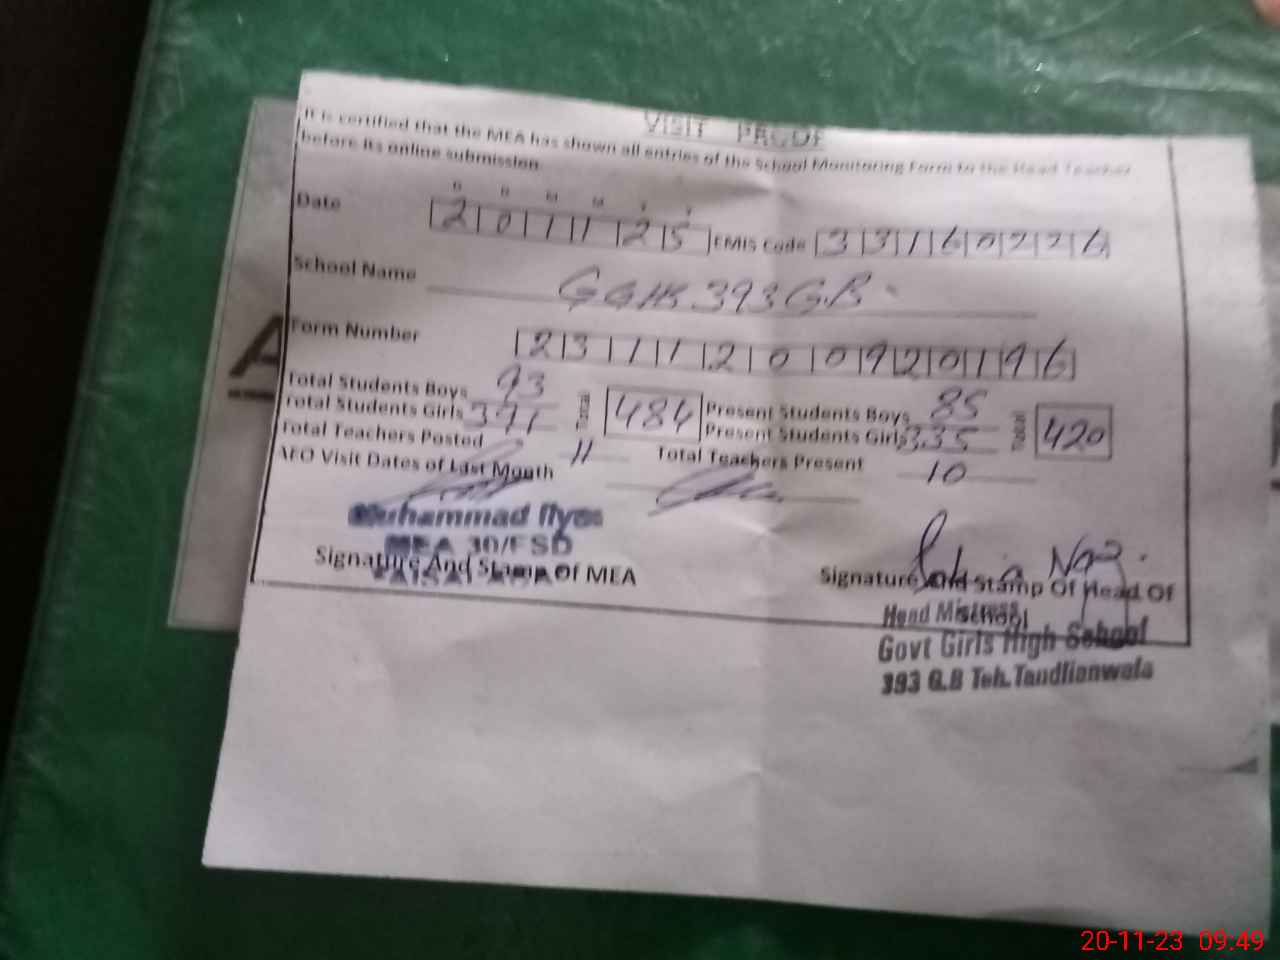 VISIT PROOF
It is certified that the MEA has shown all entries of the School Monitoring Form to the Head Teacher
before its online submission
D D M M Y Y
Date 201125 EMIS Code 33160226
School Name GGHS 393 G.B
Form Number 2311200920196
Total Students Boys 93
Total Students Girls 391 Total 484
Present Students Boys 85
Present Students Girls 335 Total 420
Total Teachers Posted 11 Total Teachers Present 10
AEO Visit Dates of Last Month
Muhammad Ilyas
MEA 30/FSD
FAISALABAD
Signature And Stamp Of MEA
Signature And Stamp Of Head Of
School
Head Mistress
Govt Girls High School
393 G.B Teh. Tandlianwala
A
20-11-23 09:49